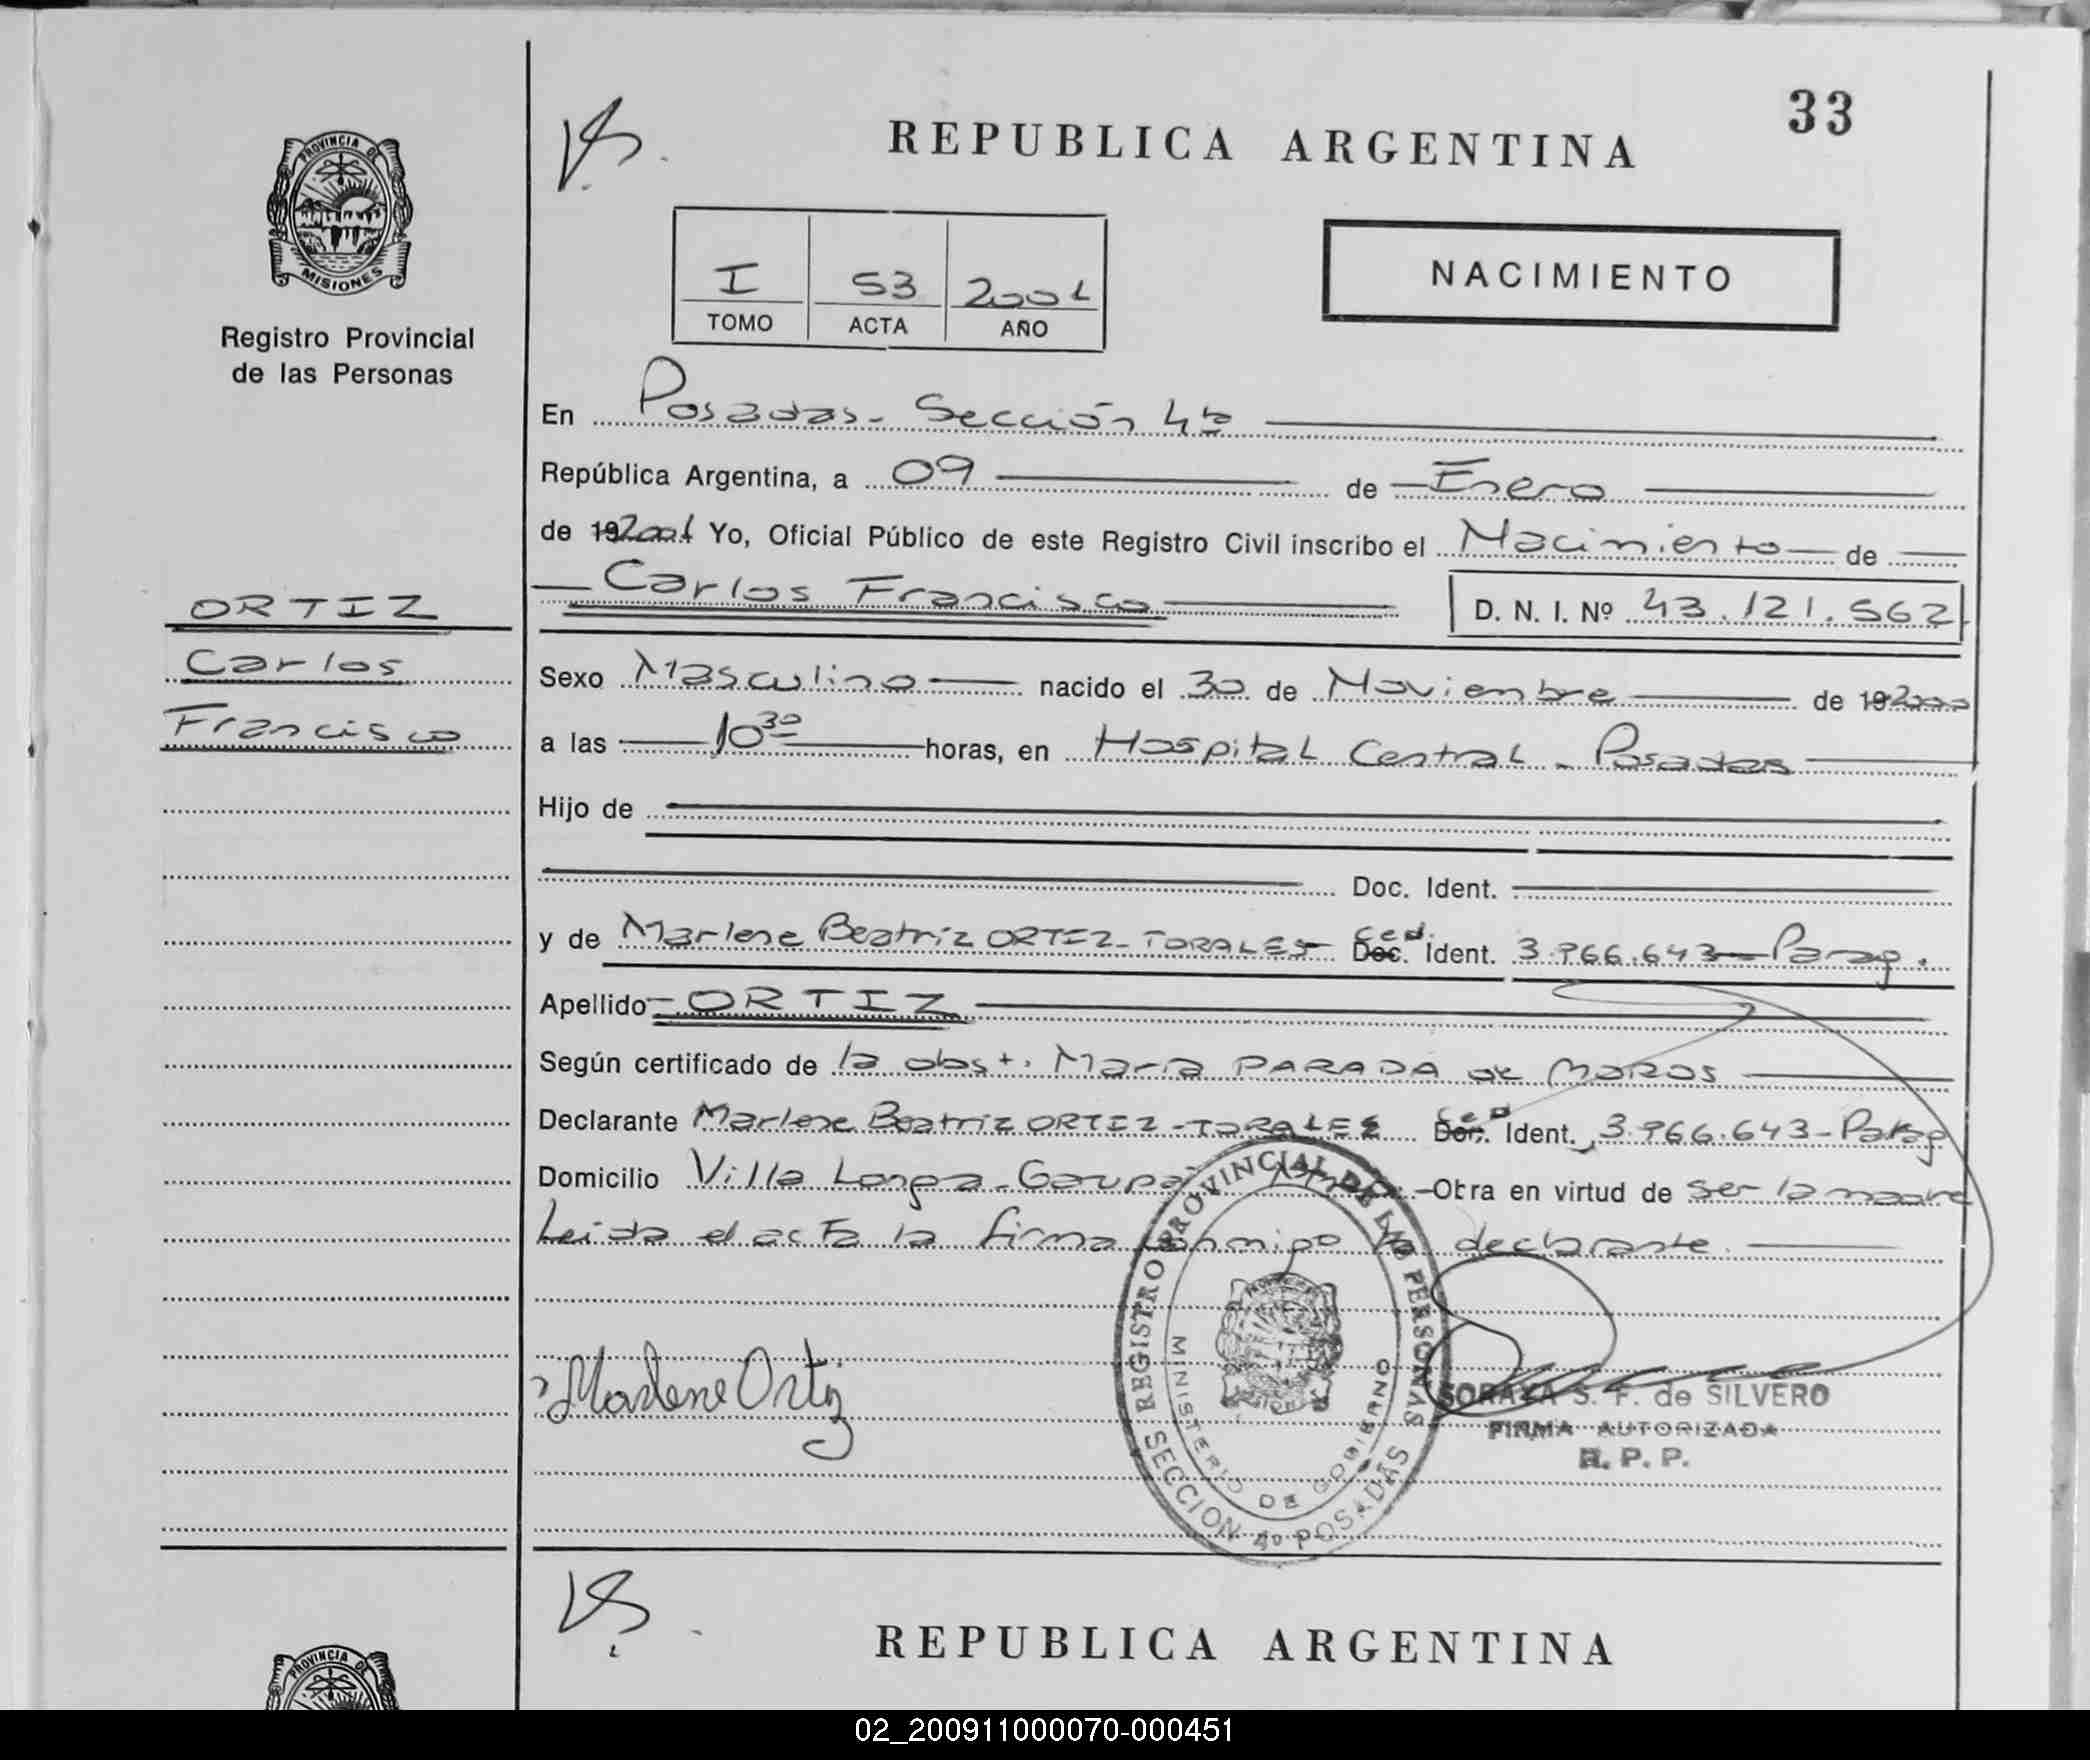 33
REPUBLICA ARGENTINA
PROVINCIA DE
MISIONES
Registro Provincial
de las Personas
I 53 2001
TOMO ACTA AÑO
NACIMIENTO
En Posadas - Sección 4ta
República Argentina, a 09 de Enero
de 19 2001 Yo, Oficial Público de este Registro Civil inscribo el Nacimiento de
Carlos Francisco D. N. I. Nº 43.121.562
ORTIZ
Carlos
Francisco
Sexo Masculino nacido el 30 de Noviembre de 19 2000
a las 10 30 horas, en Hospital Central - Posadas
Hijo de
Doc. Ident.
y de Marlene Beatriz ORTIZ - TORALES Doc. Ced. Ident. 3.966.643 - Parag.
Apellido ORTIZ
Según certificado de la obst. María PARADA de MOROS
Declarante Marlene Beatriz ORTIZ - TORALES Doc. Ced Ident. 3.966.643 - Parag
Domicilio Villa Longa - Garupá Obra en virtud de ser la madre
Leida el acta la firma conmigo la declarante.
Marlene Ortiz
REGISTRO PROVINCIAL DE LAS PERSONAS
MINISTERIO DE GOBIERNO
SECCION 4º POSADAS
SORAYA S. F. de SILVERO
FIRMA AUTORIZADA
R. P. P.
REPUBLICA ARGENTINA
PROVINCIA DE
02_200911000070-000451